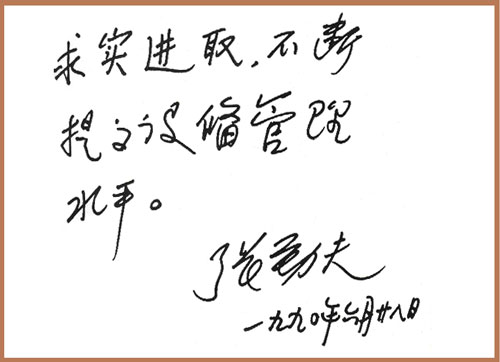 求实进取，不断
提高设备管理
水平。
张劲夫
一九九〇年六月廿八日